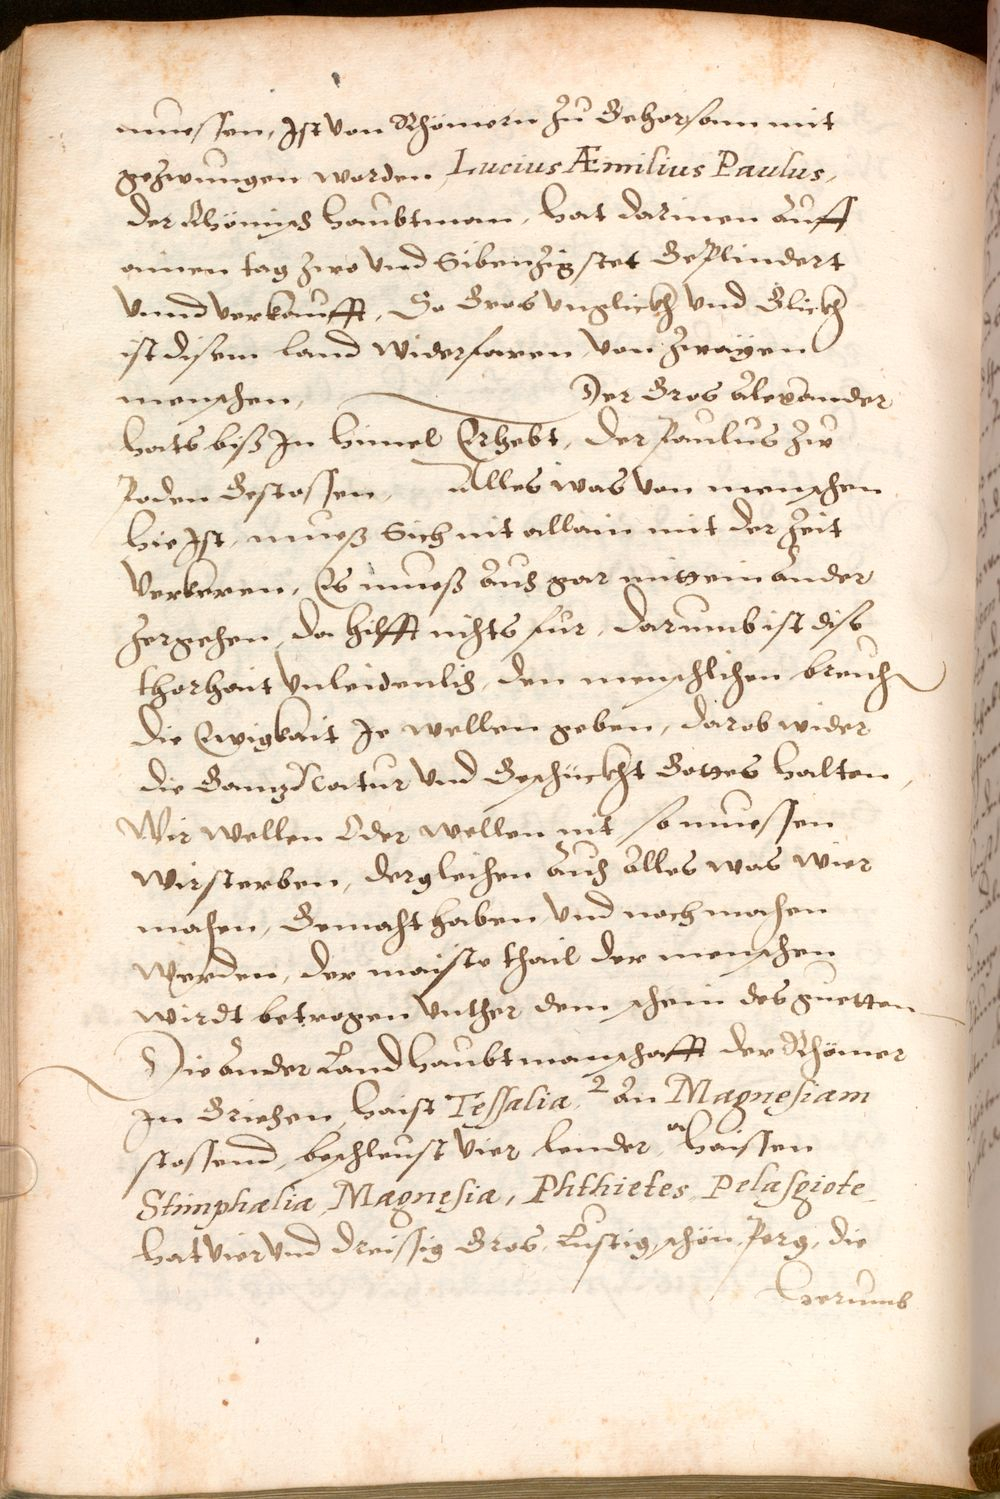 muessen, Ist von Rhömern zu Gehorsam mit
gezwungen worden, Lucius Æmilius Paulus,
der Rhömisch haubtman, hat darinen auff
ainen tag zwo und Sibenzig stet Geplindert
unnd verkaufft, So Gros unglickh und Glickh
ist disem land widerfaren, von zwayen
menschen, Der Gros Alexander
hats biß In himel Erhebt, der Paulus zw
Poden Gestossen, Alles was von menschen
hie Ist, mueß Sich nit allain mit der Zeit
verkeren, Es mueß auch gar mitteinander
zergehen, da hilfft nichts für, darumb ist dise
thorhait unleidenlich, den menschlichen breuch
die Ewigkait Ie wellen geben, darob wider
die Gantz Natur und Geschückht Gottes halten,
Wir wellen Oder wellen nit, so muessen
wir sterben, dergleichen auch alles was wier
machen, Gemacht haben, und noch machen
werden, der maiste thail der menschen
wirdt betrogen unther dem schein des guetten
Die ander Landhaubtmanschafft der Rhömer
In Griechen, haist Tessalia, 2 an Magnesiam
stossend, beschleust vier lender, haissen
Stimphælia, Magnesia, Phthietes, Pelasgiote
hat vier und dreissig Gros, Lustig, schön, Perg, die
herumb